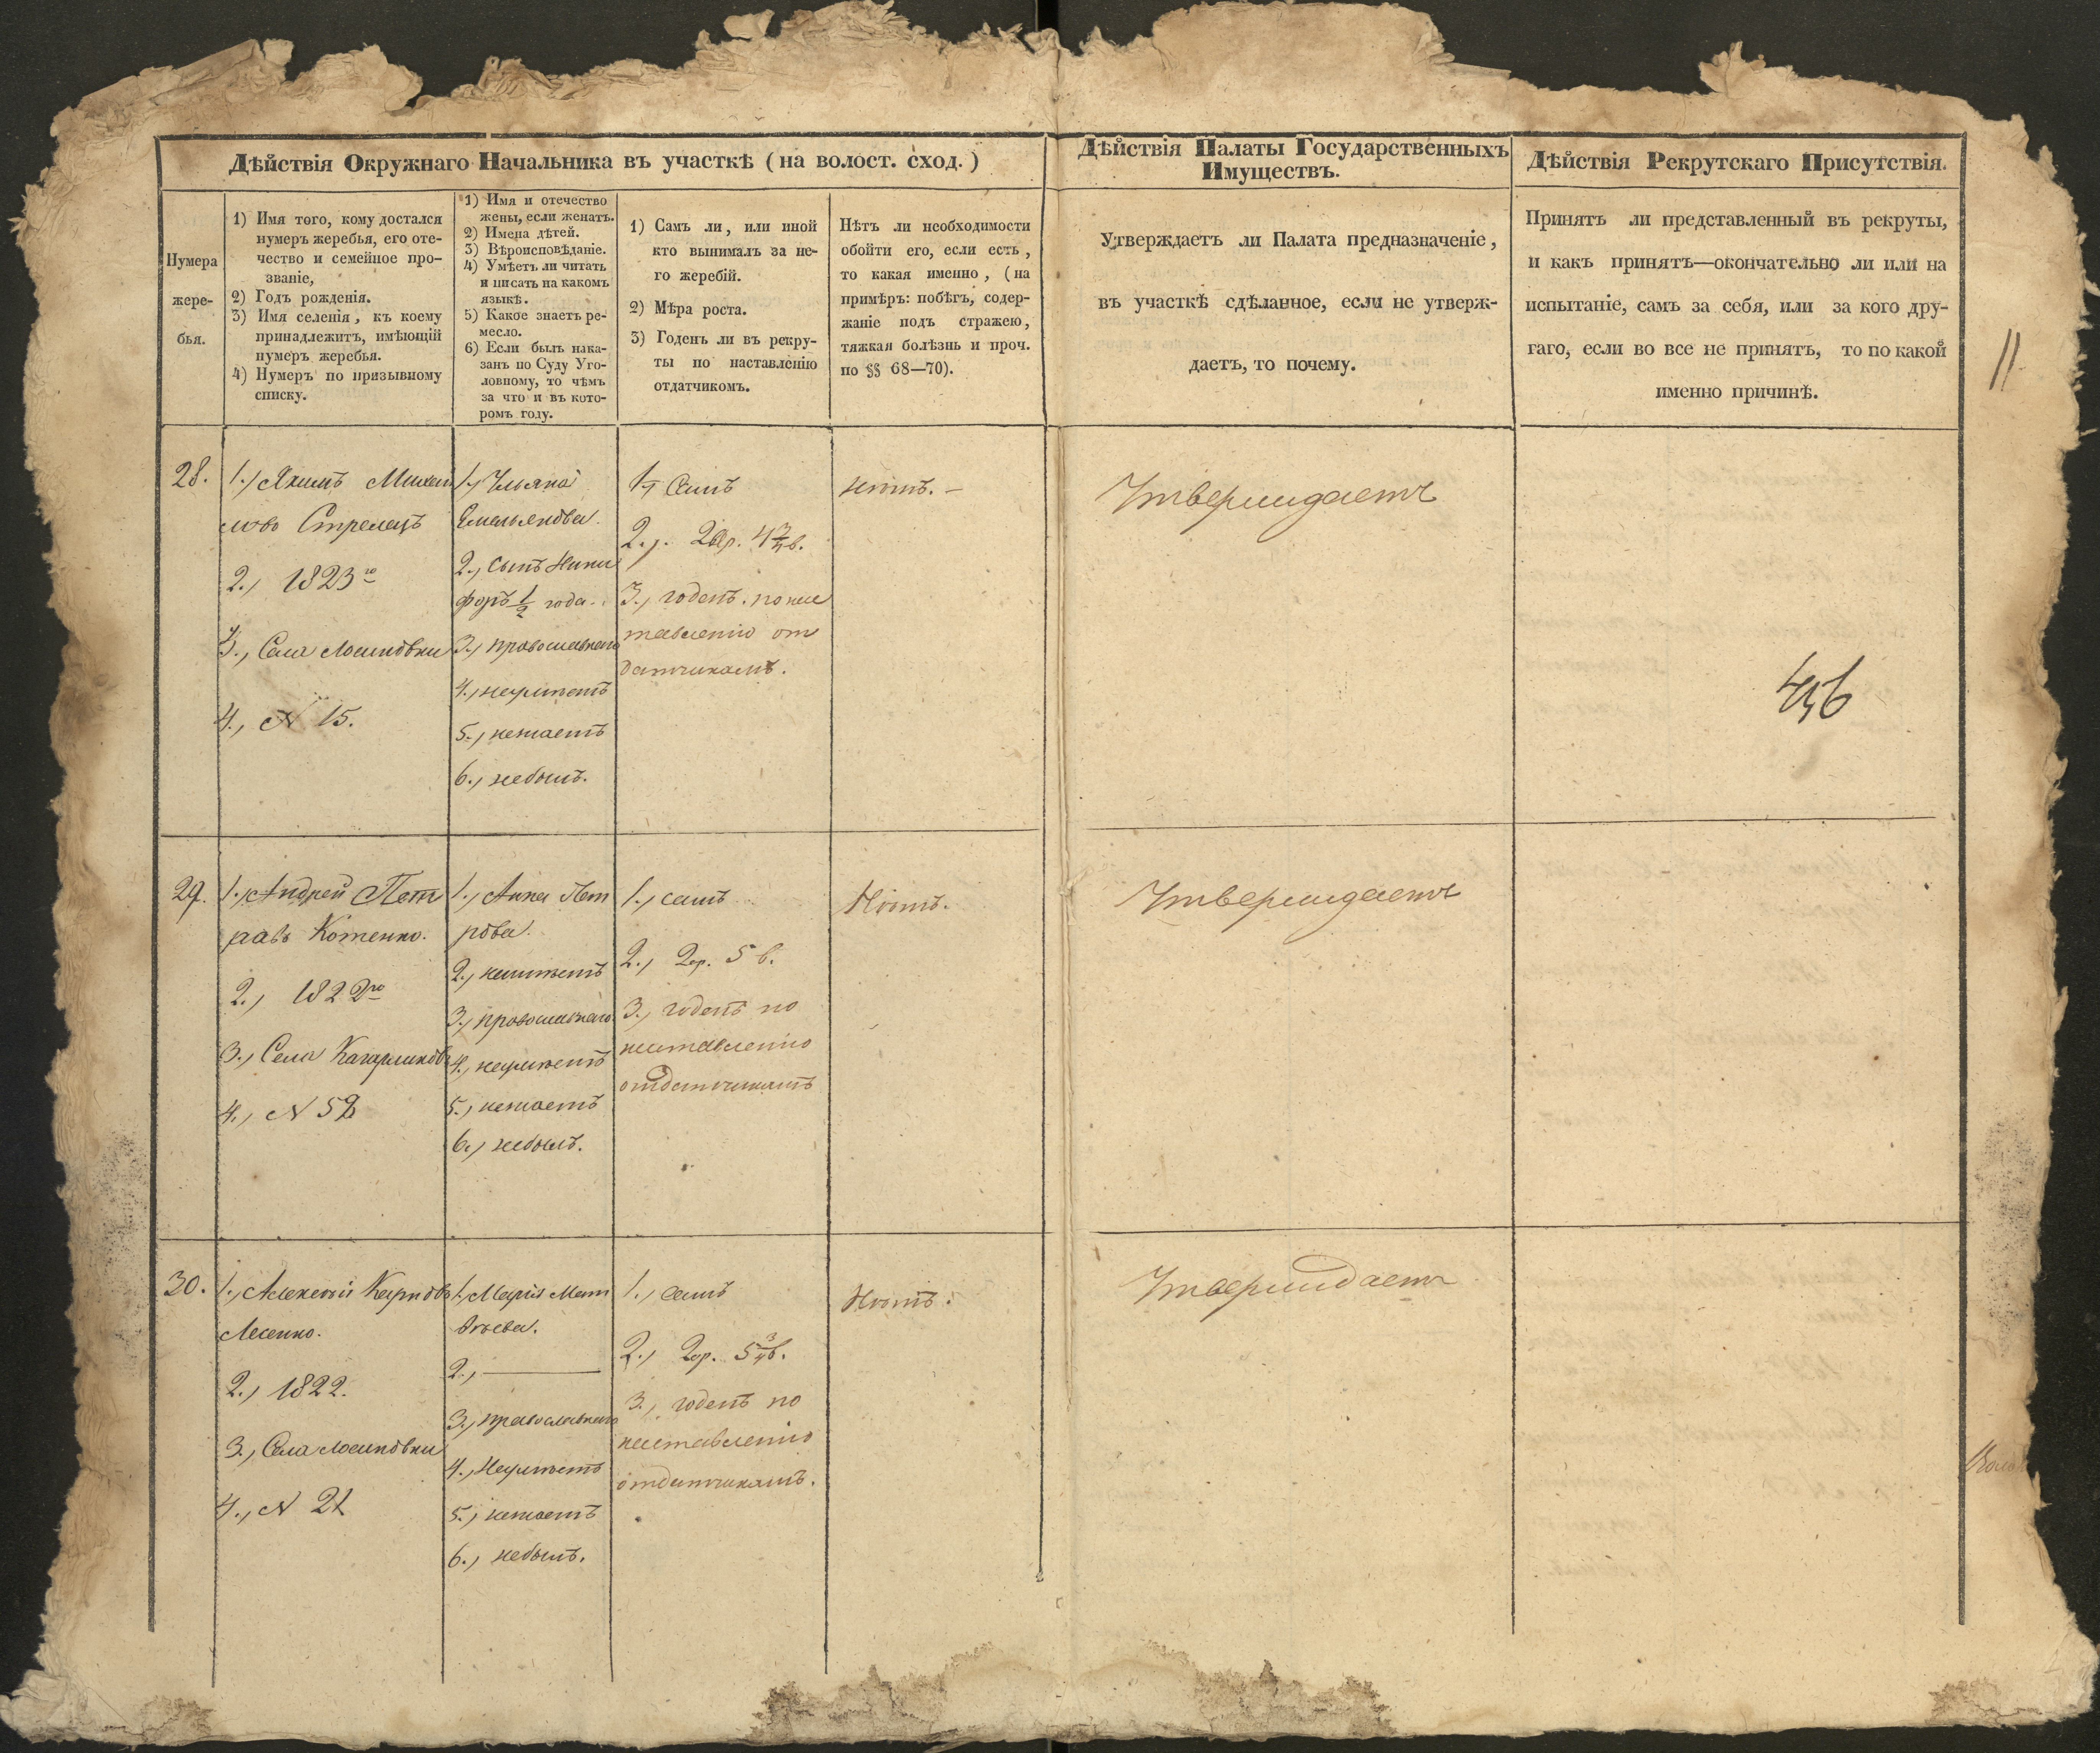 Дѣйствія Окружнаго Начальника въ участкѣ (на волост. сход.)
Дѣйствія Палаты Государственныхъ
Имуществъ.
Дѣйствія Рекрутскаго Присутствія.
Нумера
жере-
бья.
1) Имя того, кому достался
нумеръ жеребья, его оте-
чество и семейное про-
званіе,
2) Годъ рожденія.
3) Имя селенія, къ коему
принадлежитъ, имѣющій
нумеръ жеребья.
4) Нумеръ по призывному
списку.
1) Имя и отечество
жены, если женатъ.
2) Имена дѣтей.
3) Вѣроисповѣданіе.
4) Умѣетъ ли читать
и писать на какомъ
языкѣ.
5) Какое знаетъ ре-
месло.
6) Если былъ нака-
занъ по Суду Уго-
ловному, то чѣмъ
за что и въ кото-
ромъ году.
1) Самъ ли, или иной
кто вынималъ за не-
го жеребій.
2) Мѣра роста.
3) Годенъ ли въ рекру-
ты по наставленію
отдатчикомъ.
Нѣтъ ли необходимости
обойти его, если есть,
то какая именно, (на
примѣръ: побѣгъ, содер-
жаніе подъ стражею,
тяжкая болѣзнь и проч.
по §§ 68—70).
Утверждаетъ ли Палата предназначеніе,
въ участкѣ сдѣланное, если не утверж-
даетъ, то почему.
Принятъ ли представленный въ рекруты,
и какъ принятъ—окончательно ли или на
испытаніе, самъ за себя, или за кого дру-
гаго, если во все не принятъ, то по какой
именно причинѣ.
11
28.
1., Якимъ Михаи
лово Стрелецъ
2., 1823го
3., Села Лосиновки
4., N 15.
1., Ульяна
Емельянова.
2., сынъ Ники
форъ 1/2 года.
3., православнаго
4., неумѣетъ
5., незнаетъ
6., небылъ.
1., Самъ
2., 2ар. 4 3/4 в.
3., годенъ. по нас
тавленію от
датчикамъ.
нѣтъ. –
Утверждаетъ
29.
1., Андрей Пет
ровъ Котенко.
2., 1822го
3., Села Кагарликовъ
4., N 52
1., Анна Пет
рова.
2., неимѣетъ
3., православнаго
4., неумѣетъ
5., незнаетъ
6., небылъ.
1., самъ
2., 2ар. 5 в.
3., годенъ по
наставленію
отдатчикамъ
Нѣтъ.
Утверждаетъ
30.
1., Алексѣй Карповъ
Лесенко.
2., 1822.
3., Села Лосиновки
4., N 21
1., Марія Мат
вѣева.
2., ———
3., православнаго
4., Неумѣетъ
5., незнаетъ
6., небылъ.
1., самъ
2., 2ар. 5 3/4 в.
3., годенъ по
наставленію
отдатчикамъ.
Нѣтъ.
Утверждаетъ